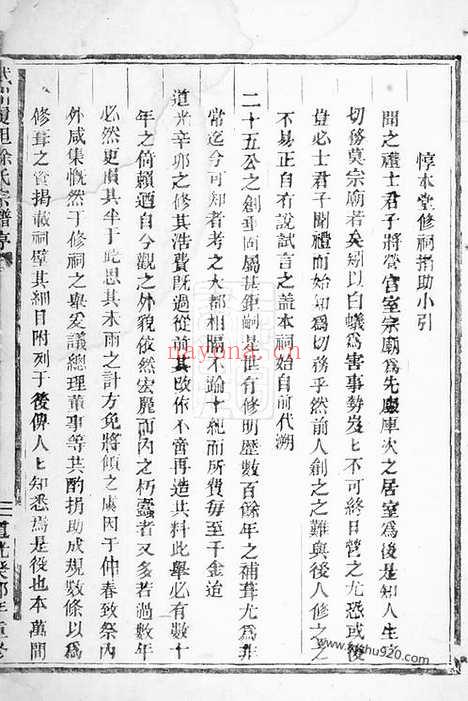 惇本堂修祠捐助小引
聞之禮士君子將營宮室宗廟為先廄庫次之居室為後是知人生之
切務莫宗廟若矣矧以白蟻為害事勢岌岌不可終日營之尤恐或後
豈必士君子聞禮而始知為切務乎然前人創之之難與後人修之之
不易正自有說試言之蓋本祠始自前代溯
二十五公之創垂固屬甚鉅嗣是世有修明歷數百餘年之補葺尤為非
常迄今可知者考之大都相隔不踰十紀而所費每至千金迨
道光辛卯之修其浩費既過從前其改作不啻再造其料此舉必有數十
年之倚賴迺自今觀之外貌依然宏麗而內之朽蠹者又多若過數年
必然更虞其半于此思其未雨之計方免將傾之虞因于仲春致祭內
外咸集慨然于修祠之舉爰議總理董事等共酌捐助成規數條以為
修葺之資揭載祠壁其細目附列于後俾人人知悉焉是役也本萬閤
徐氏宗譜
道光癸卯年重
www.shu920.com
nayona.cn